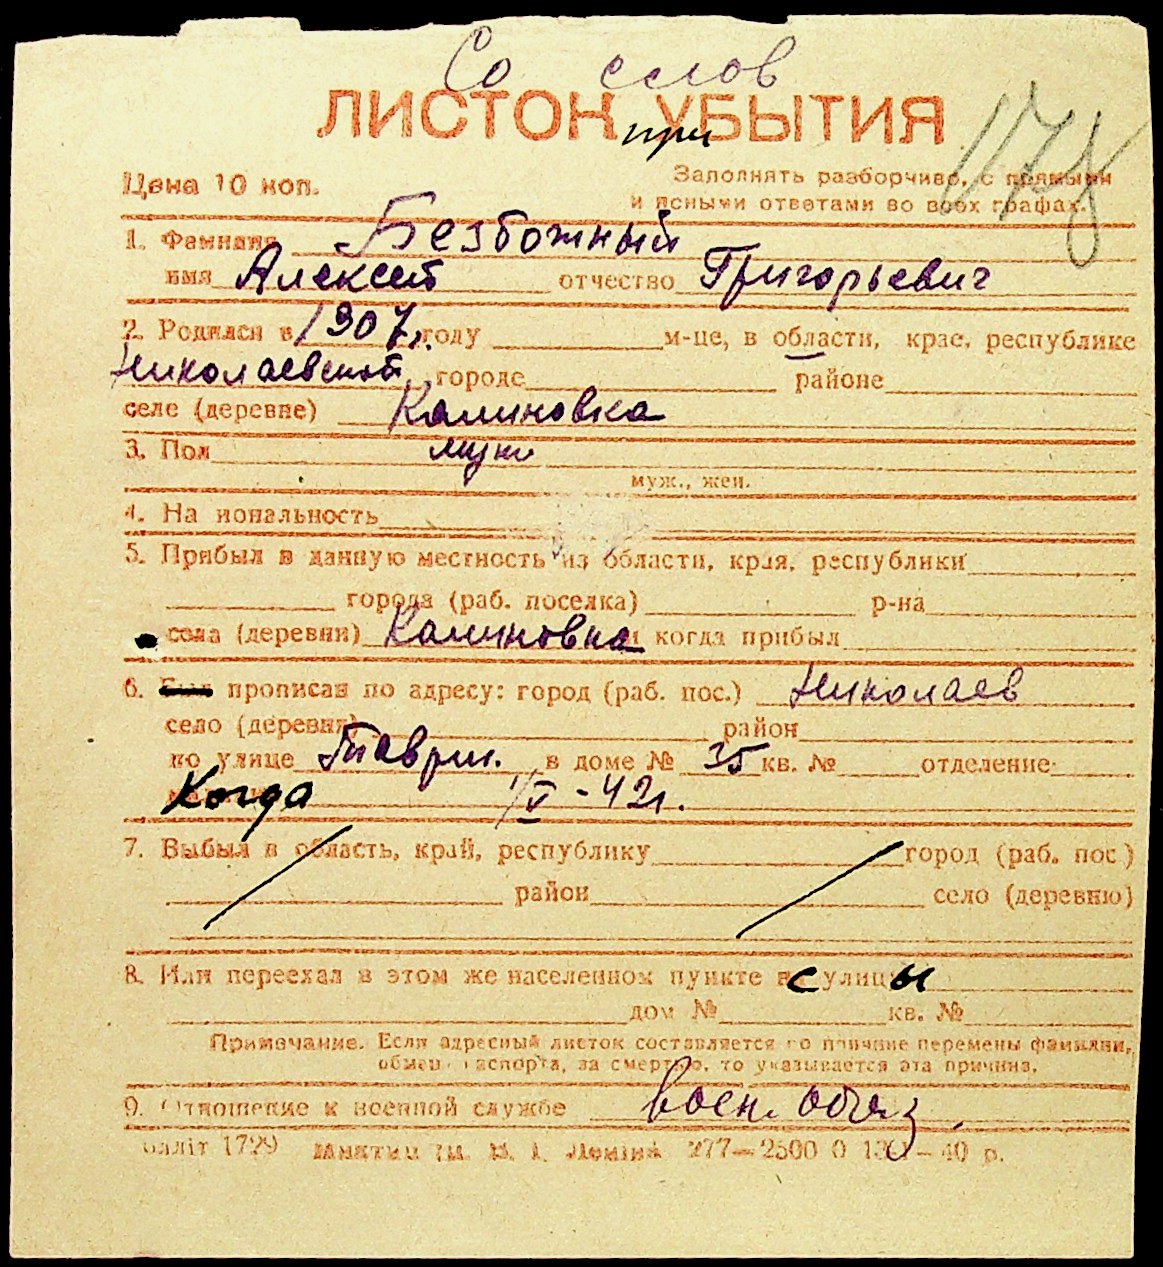 Со слов
ЛИСТОК УБЫТИЯ
при
178
Цена 10 коп.
Заполнять разборчиво, с прямыми
и ясными ответами во всех графах.
1. Фамилия Безбожный
имя Алексей отчество Григорьевич
2. Родился в 1907 г. году м-це, в области, крае, республике
Николаевской городе районе
селе (деревне) Калиновка
3. Пол муж
муж., жен.
4. Национальность
5. Прибыл в данную местность из области, края, республики
города (раб. поселка) р-на
села (деревни) Калиновка и когда прибыл
6. Был прописан по адресу: город (раб. пос.) Николаев
село (деревня) район
по улице Таврич. в доме № 35 кв. № отделение
Когда 1/V-42 г.
7. Выбыл в область, край, республику город (раб. пос.)
район село (деревню)
8. Или переехал в этом же населенном пункте с улицы
дом № кв. №
Примечание. Если адресный листок составляется по причине перемены фамилии,
обмен паспорта, за смертью, то указывается эта причина.
9. Отношение к военной службе воен. обяз.
1729 277—2500 0 40 р.